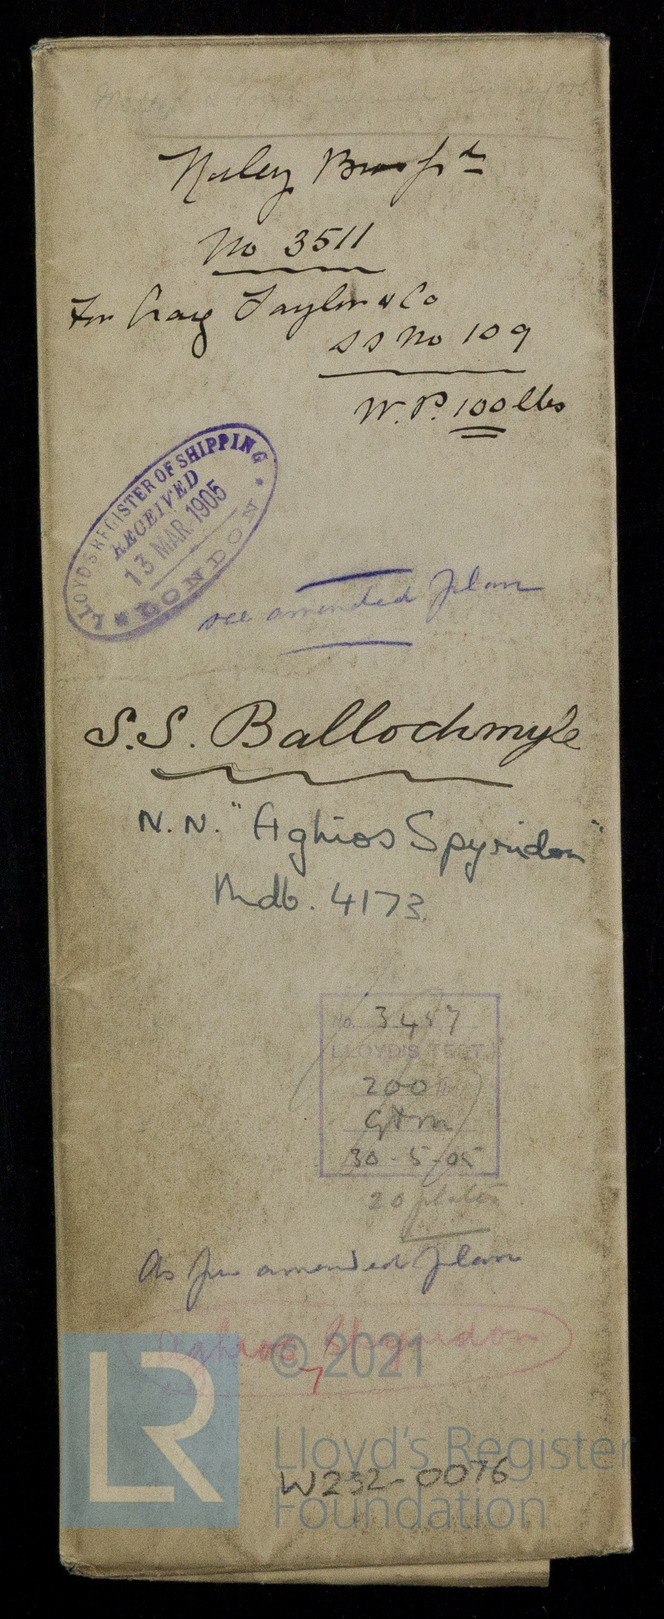 Riley Bros Ld
No 3511
For Craig Taylor & Co
SS No 109
W.P. 100 lbs
LLOYDS REGISTER OF SHIPPING
RECEIVED
13 MAR. 1905
LONDON
see amended plan
S.S. Ballochmyle
N.N. "Aghios Spyridon"
Mdb. 4173
No. 3457
LLOYD'S TEST
200 lbs
30-5-05
20 plates
As per amended plan
Aghios Spyridon
LR
© 2021
Lloyd's Register
Foundation
W232-0076